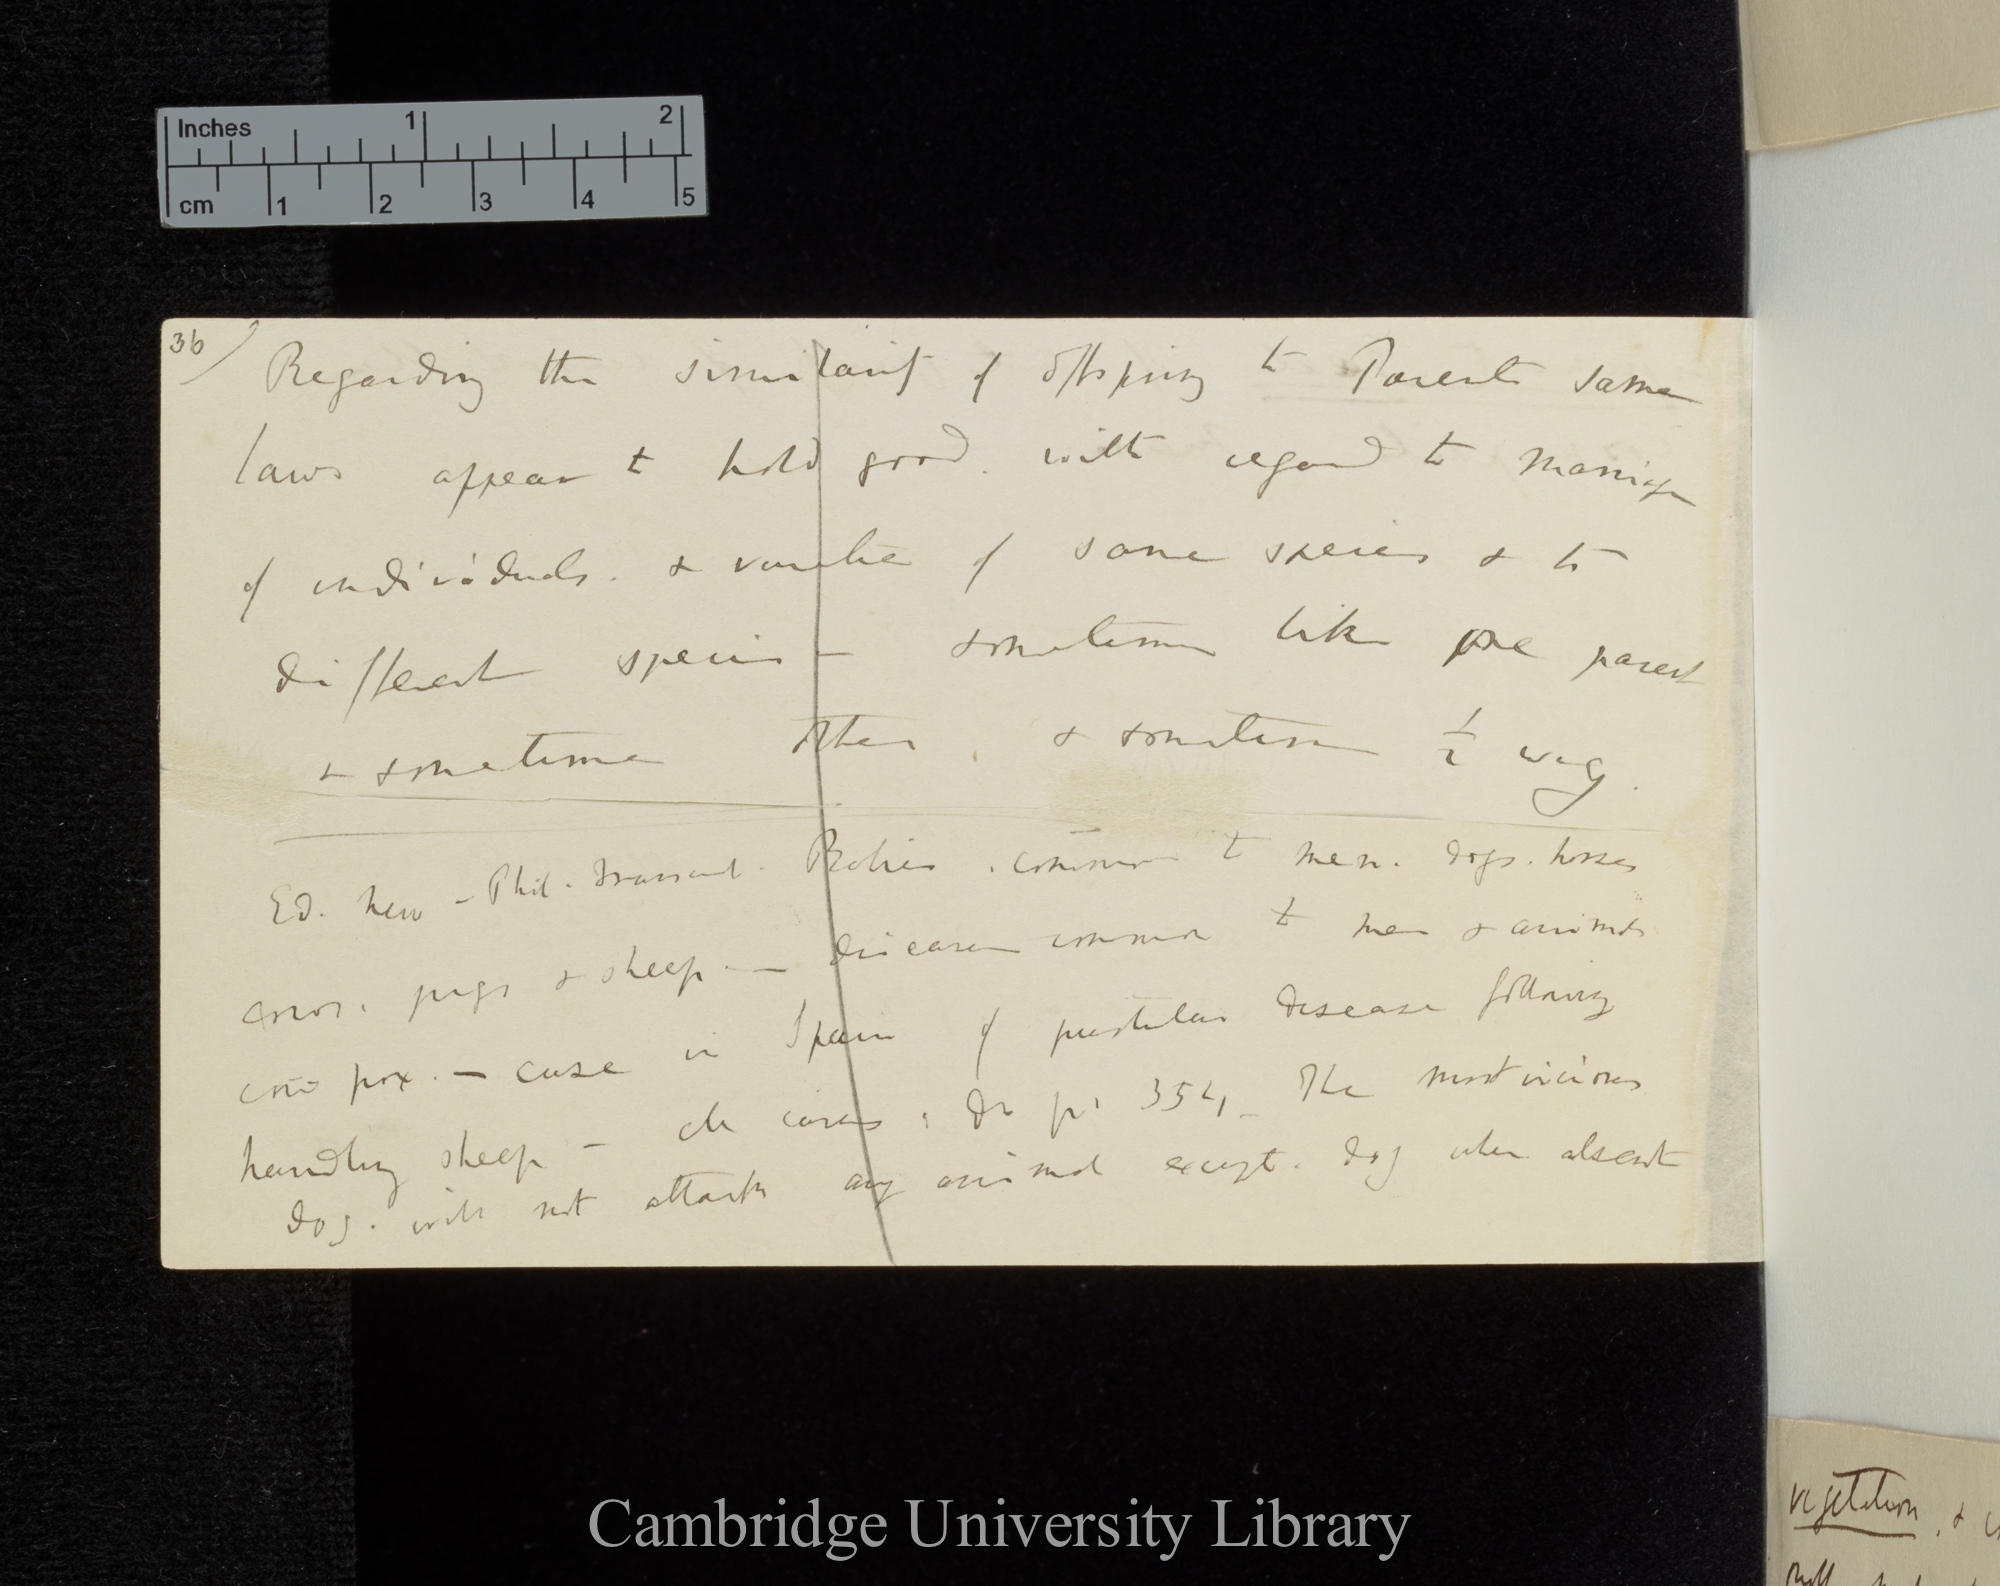 Inches 1 2
cm 1 2 3 4 5
36
Regarding the similarity of offspring to Parents same
laws appear to hold good. with regard to marriage
of individuals. & varieties of same species & to
different species — sometimes like one parent
& sometimes other & sometimes ½ way.
Ed. New – Phil. Transact. Rabies. common to men. dogs. horses
cows, pigs & sheep. — diseases common to men & animals
cow pox. — case in Spain of pustular disease following
handling sheep – cases, do p. 354, The most vicious
dog. will not attack any animal except. dog when absent
vegetation, &
Cambridge University Library